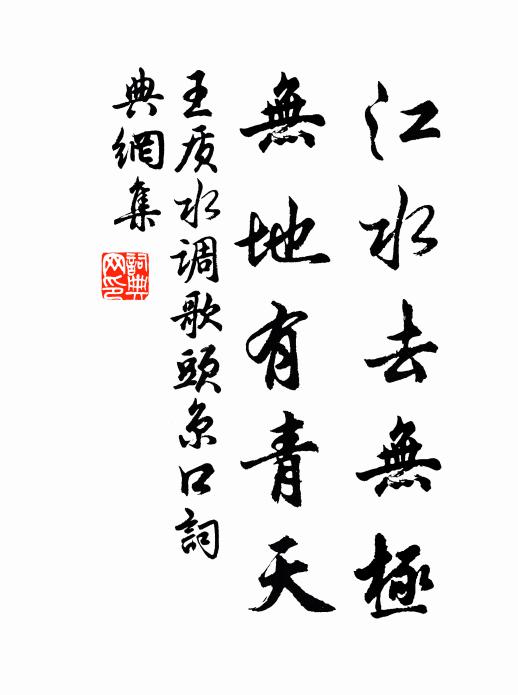 江水去無極
無地有青天
王质水调歌頭京口詞
典網集
詞典網印